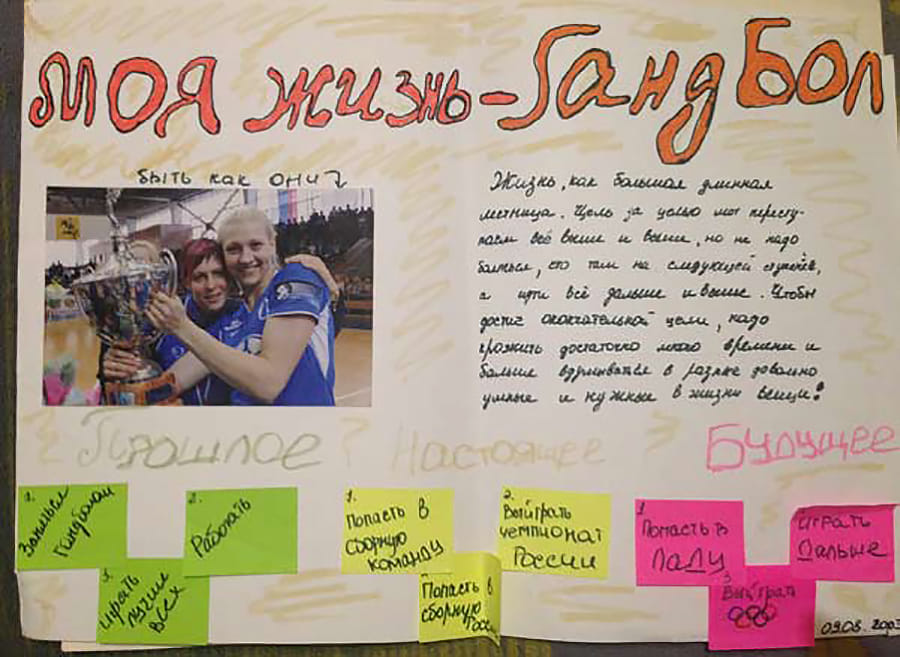 Моя жизнь - Гандбол
Быть как они?
Жизнь, как большая длинная
лестница. Цель за целью мы пересту-
паем всё выше и выше, но не надо
бояться, что там на следующей
а идти всё дальше и выше. Чтобы
достич окончательной цели, надо
прожить достаточно много времени и
больше вдумываться в разные довольно
умные и нужные в жизни вещи!
Прошлое
Настоящее
Будущее
Гандболом
2.
Работать
3.
Играть
лучше
всех
1.
Попасть в
сборную
команду
2.
Выйграть
чемпионат
России
Попасть в
сборную
России
1
Попасть в
Ладу
Играть
Дальше
3
Выйграть
09.08.